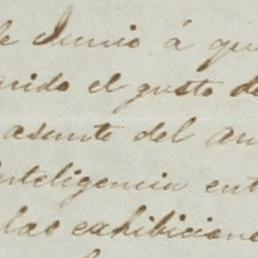 de Junio á qu
rido el gusto de
asunto del au
nteligencia ent
las exhibicione